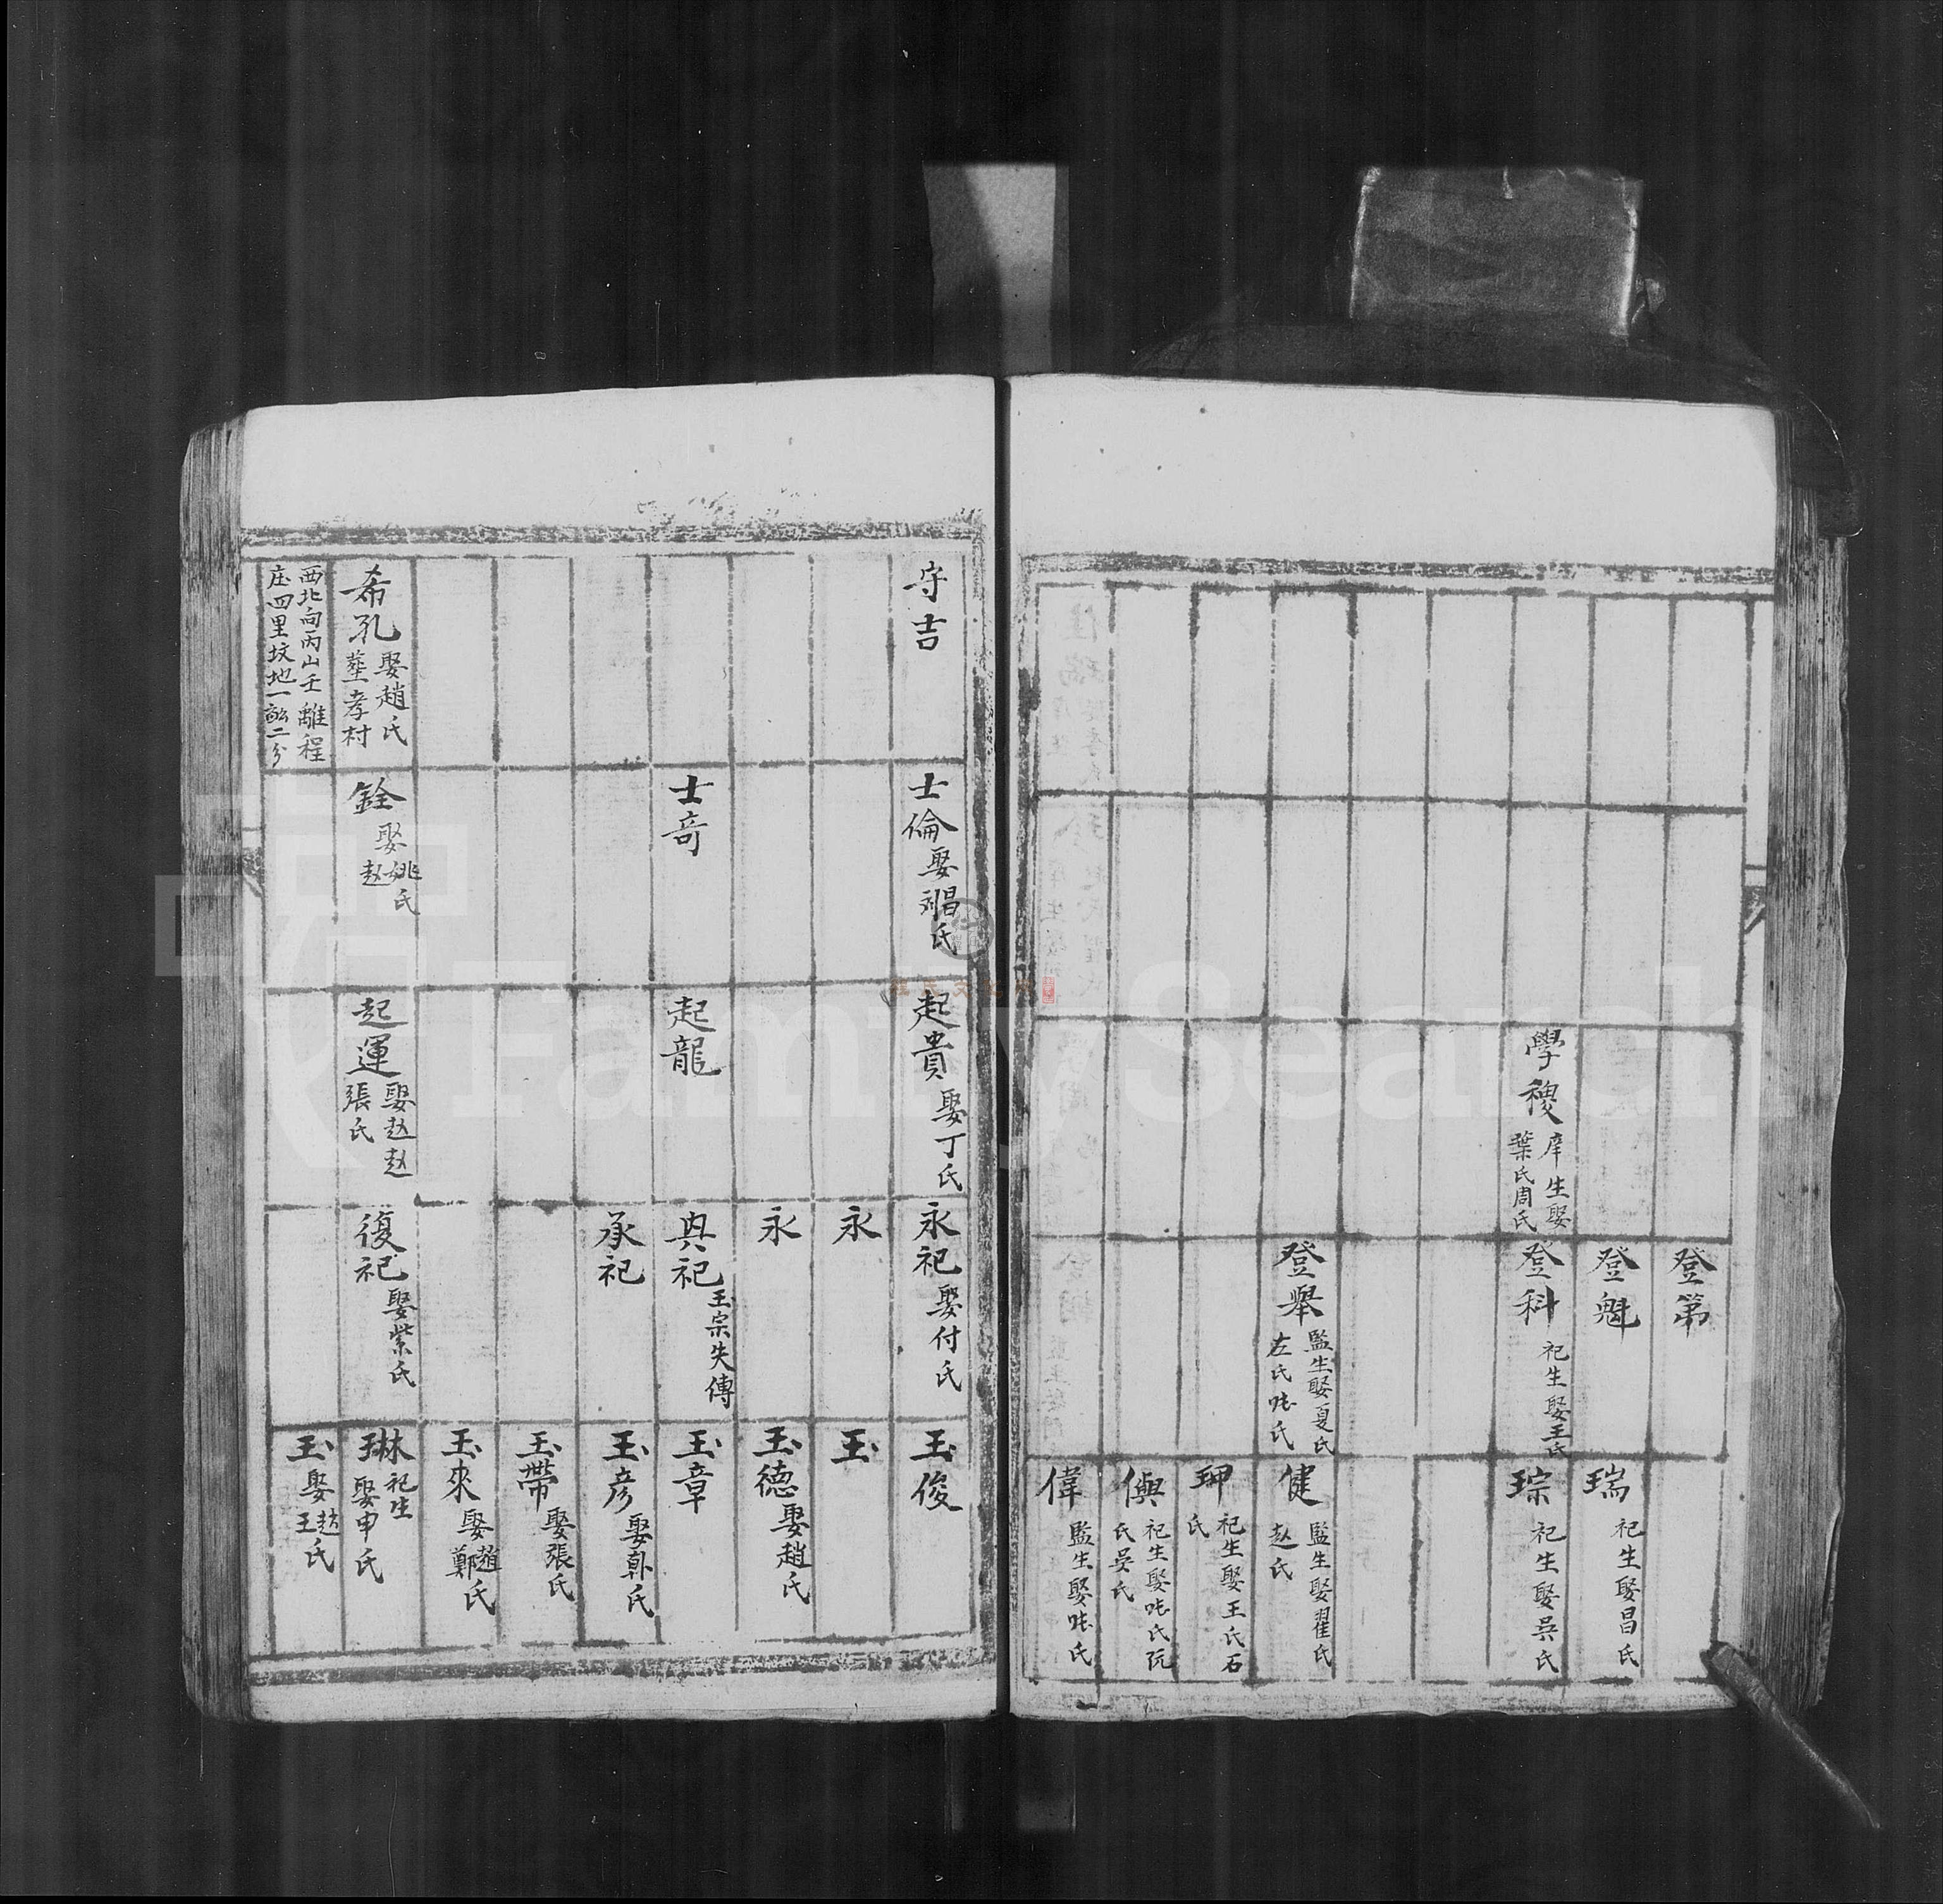 學稷 庠生娶
葉氏周氏
登第
登魁
登科 祀生娶王氏
登舉 監生娶夏氏
左氏吪氏
瑞 祀生娶昌氏
琮 祀生娶吳氏
健 監生娶翟氏
赵氏
珅 祀生娶王氏石
氏
僎 祀生娶吪氏阮
氏吳氏
偉 監生娶吪氏
守吉
希孔 娶趙氏
葬孝村
西北向丙山壬離程
庄四里坟地一畝二分
士倫 娶
昌氏
士奇
銓 娶姚
赵氏
起貴 娶丁氏
起龍
起運 娶赵赵
張氏
永祀 娶付氏
永
永
典祀 玉宗失傳
承祀
復祀 娶紫氏
玉俊
玉
玉德 娶趙氏
玉章
玉彦 娶郭氏
玉帶 娶張氏
玉來 娶趙
鄭氏
琳 祀生
娶申氏
玉 娶赵
王氏
FamilySearch